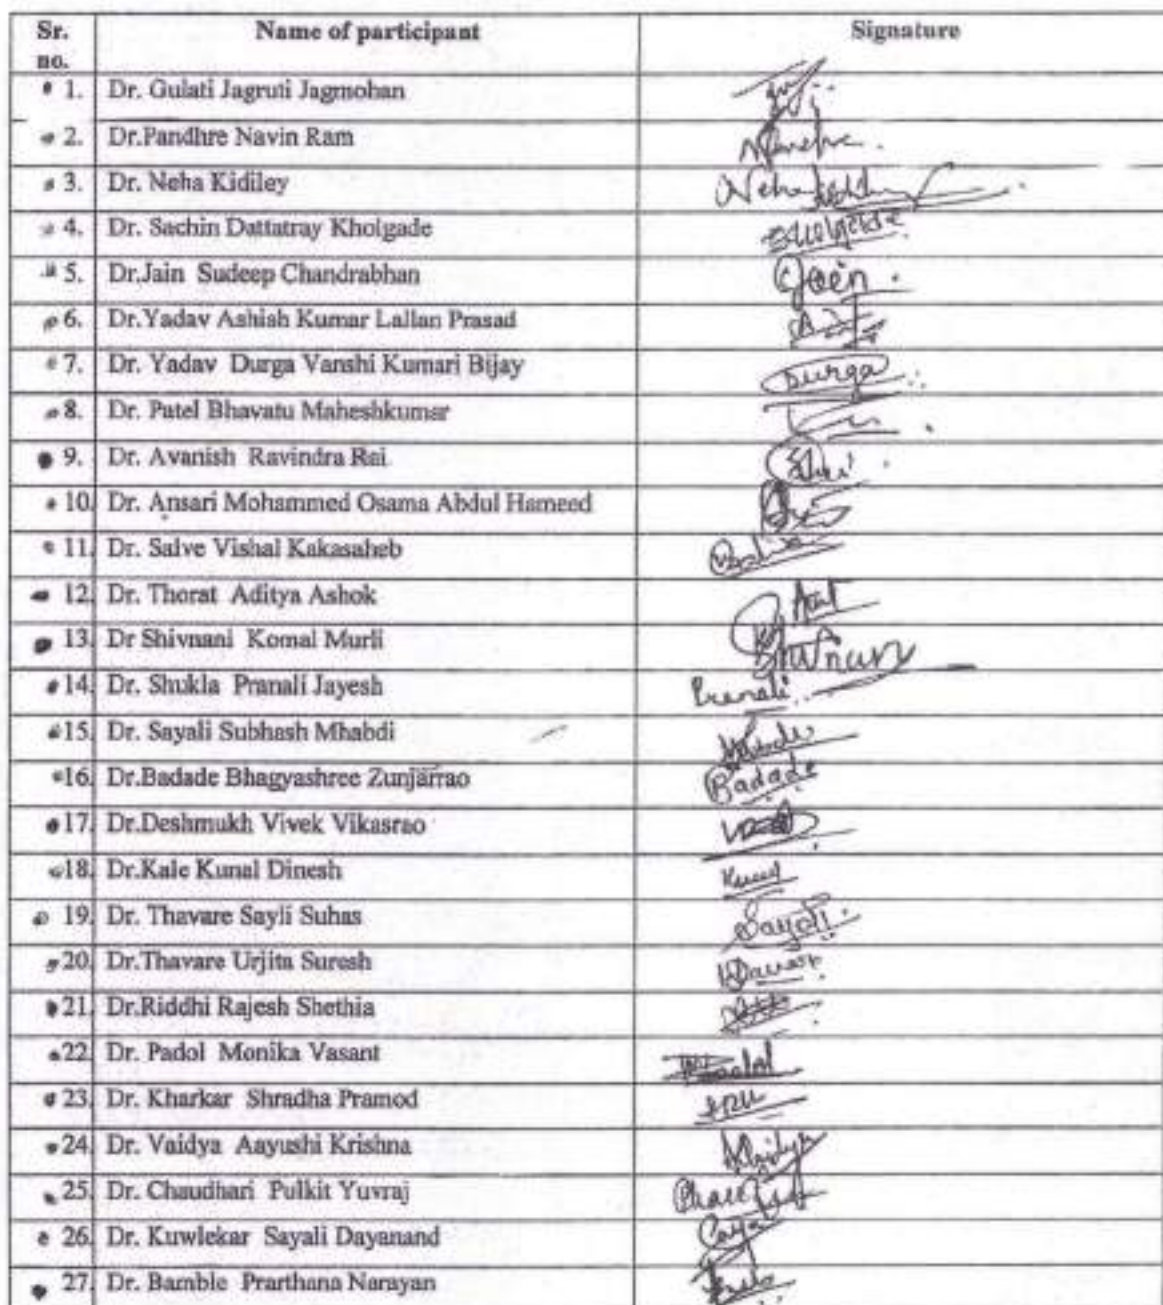 Sr. no. Name of participant Signature
1. Dr. Gulati Jagruti Jagmohan
2. Dr.Pandhre Navin Ram
3. Dr. Neha Kidiley Neha
4. Dr. Sachin Dattatray Kholgade
5. Dr.Jain Sudeep Chandrabhan Jain
6. Dr.Yadav Ashish Kumar Lallan Prasad
7. Dr. Yadav Durga Vanshi Kumari Bijay Durga
8. Dr. Patel Bhavatu Maheshkumar
9. Dr. Avanish Ravindra Rai
10. Dr. Ansari Mohammed Osama Abdul Hameed
11. Dr. Salve Vishal Kakasaheb
12. Dr. Thorat Aditya Ashok
13. Dr Shivnani Komal Murli
14. Dr. Shukla Pranali Jayesh Pranali
15. Dr. Sayali Subhash Mhabdi
16. Dr.Badade Bhagyashree Zunjarrao Badade
17. Dr.Deshmukh Vivek Vikasrao
18. Dr.Kale Kunal Dinesh
19. Dr. Thavare Sayli Suhas
20. Dr.Thavare Urjita Suresh
21. Dr.Riddhi Rajesh Shethia
22. Dr. Padol Monika Vasant
23. Dr. Kharkar Shradha Pramod
24. Dr. Vaidya Aayushi Krishna
25. Dr. Chaudhari Pulkit Yuvraj
26. Dr. Kuwlekar Sayali Dayanand
27. Dr. Bamble Prarthana Narayan